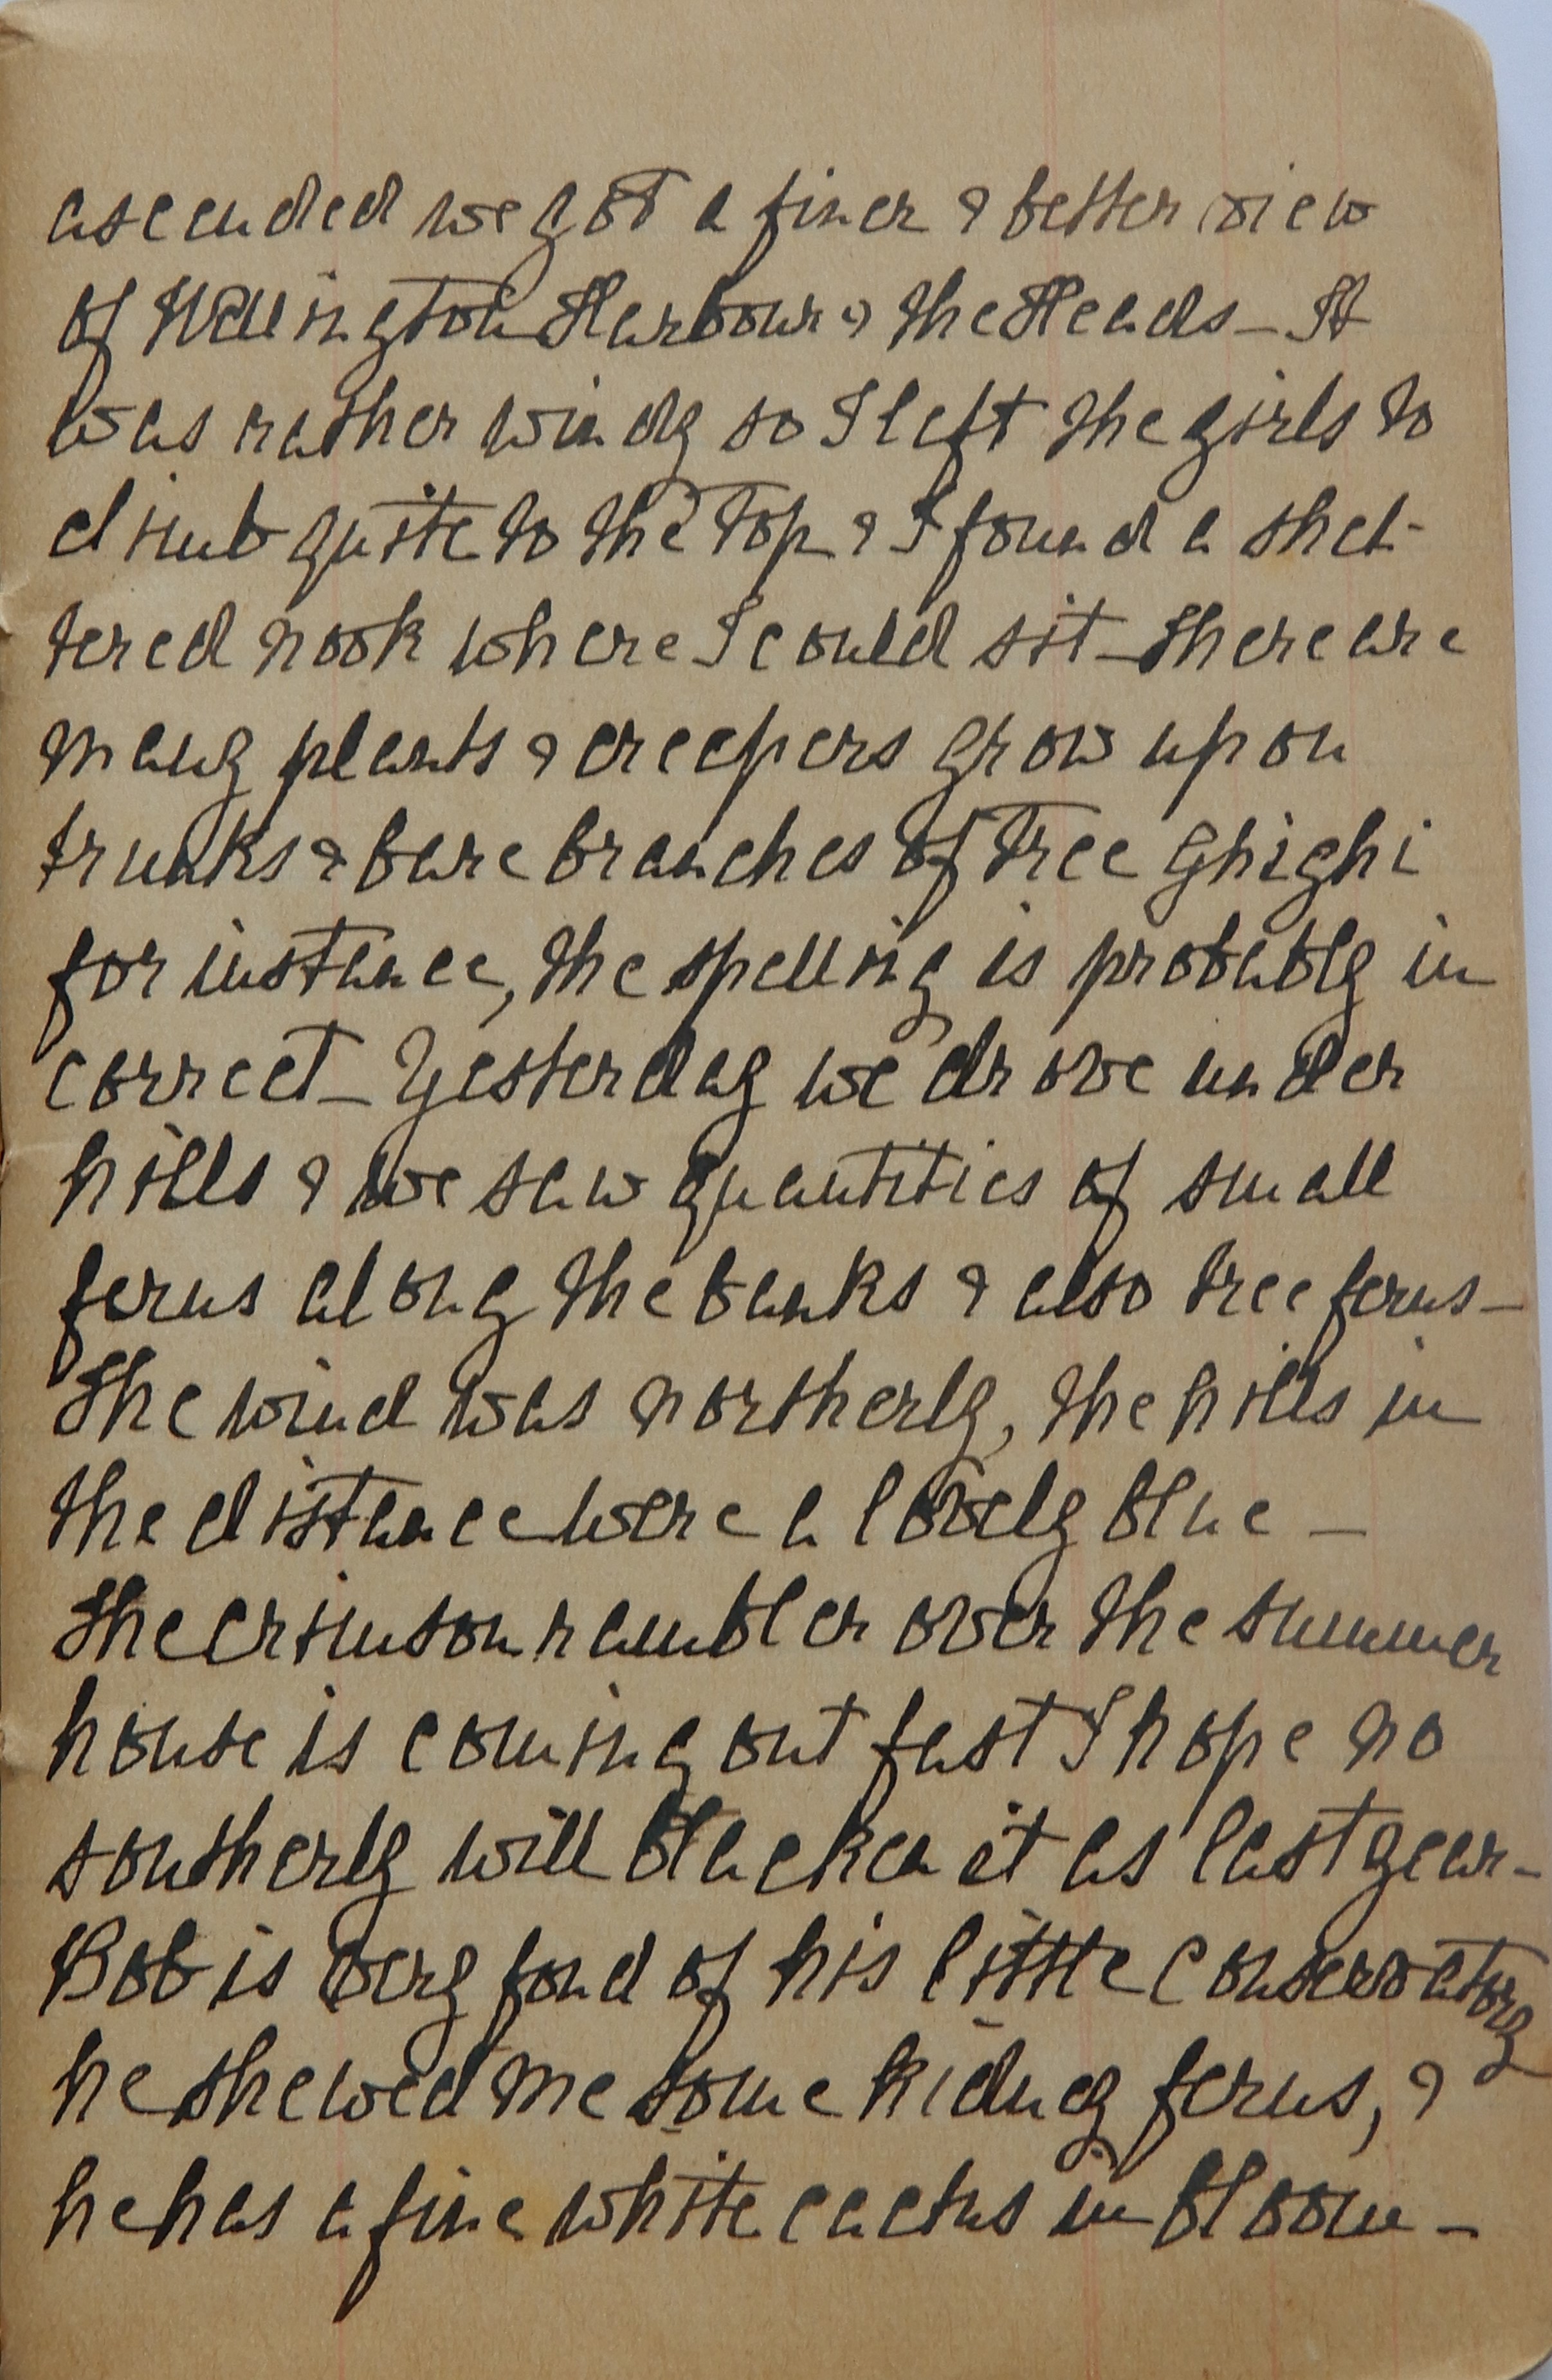 ascended we got a finer & better view
of Wellington Harbour & the Heads - It
was rather windy so I left the girls to
climb quite to the top & I found a shel-
tered nook where I could sit - There are
many plants & creepers grow upon
trunks & bare branches of tree Ghighi
for instance, the spelling is probably in
correct - Yesterday we drove under
hills & we saw quantities of small
ferns along the banks & also tree ferns -
The wind was northerly, the hills in
the distance were a lovely blue -
The crimson rambler over the summer
house is coming out fast I hope no
southerly will blacken it as last year -
Bob is very fond of his little conservatory
he shewed me some kidney ferns, &
he has a fine white cactus in bloom -